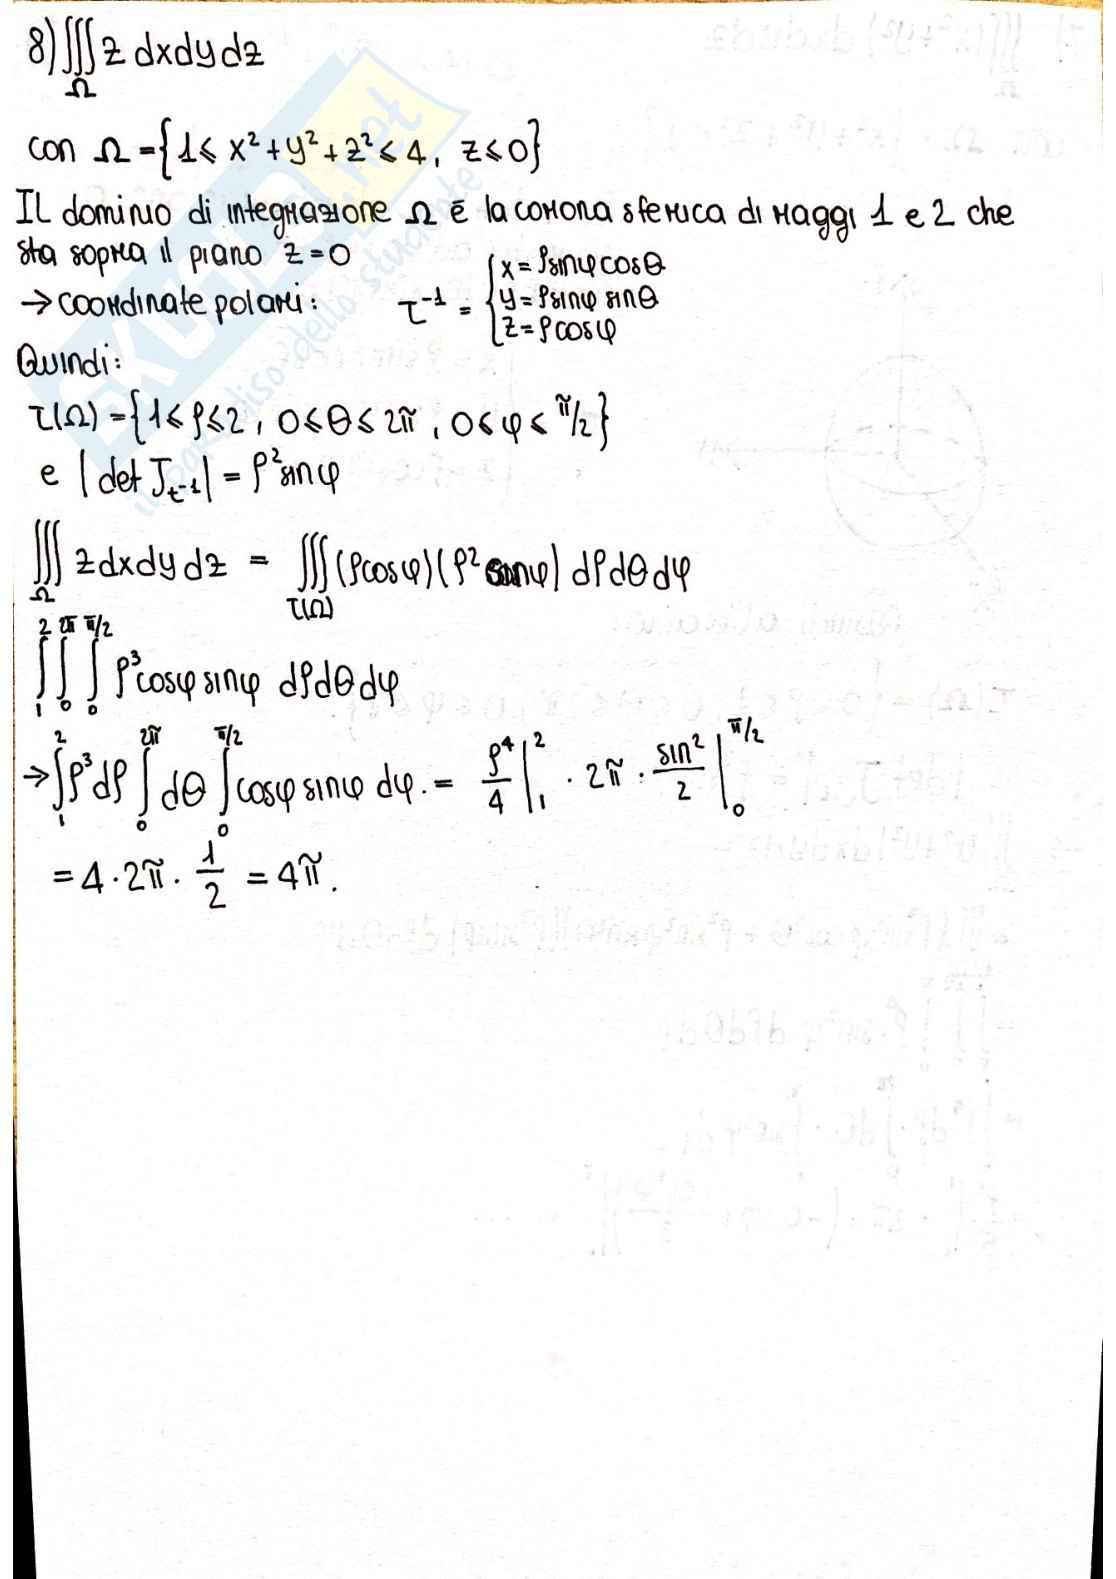 8) ∭_Ω z dxdydz
con Ω = {1 ≤ x² + y² + z² ≤ 4, z ≤ 0}
Il dominio di integrazione Ω è la corona sferica di raggi 1 e 2 che
sta sopra il piano z = 0
→ coordinate polari: τ⁻¹ = { x = ρ sinφ cosθ
y = ρ sinφ sinθ
z = ρ cosφ
Quindi:
τ(Ω) = {1 ≤ ρ ≤ 2, 0 ≤ θ ≤ 2π, 0 ≤ φ ≤ π/2}
e |det J_τ⁻¹| = ρ² sinφ
∭_Ω z dxdydz = ∭_τ(Ω) (ρcosφ)(ρ² sinφ) dρdθdφ
∫₁² ∫₀^2π ∫₀^π/2 ρ³ cosφ sinφ dρdθdφ
→ ∫₁² ρ³dρ ∫₀^2π dθ ∫₀^π/2 cosφ sinφ dφ. = ρ⁴/4 |₁² · 2π · sin²/2 |₀^π/2
= 4 · 2π · 1/2 = 4π.
SKUOLA.net
il paradiso dello studente